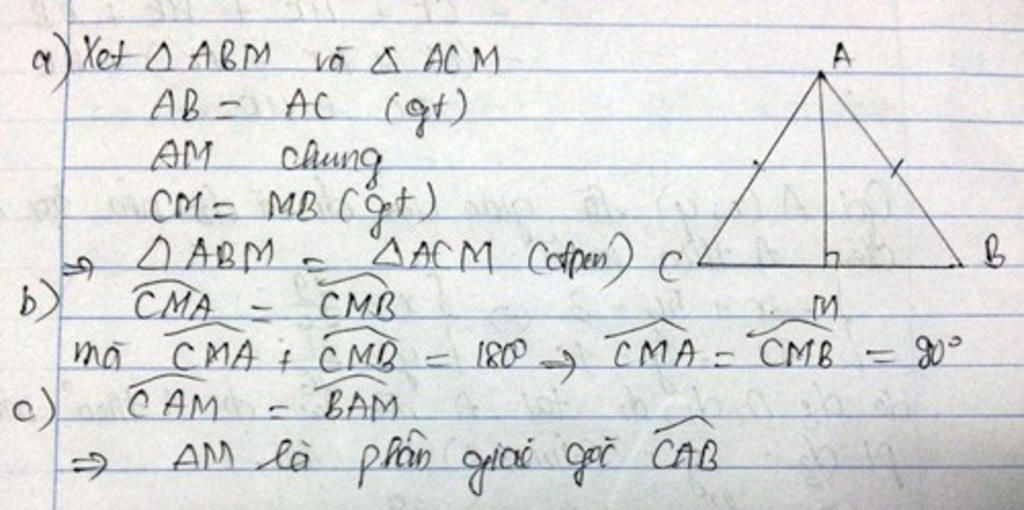 a) Xet △ ABM và △ ACM
AB = AC (gt)
AM chung
CM = MB (gt)
⇒ △ ABM = △ ACM
b) \widehat{CMA} = \widehat{CMB}
mà \widehat{CMA} + \widehat{CMB} = 180° ⇒ \widehat{CMA} = \widehat{CMB} = 90°
c) \widehat{CAM} = \widehat{BAM}
⇒ AM là phân giác góc \widehat{CAB}
A
C
B
M